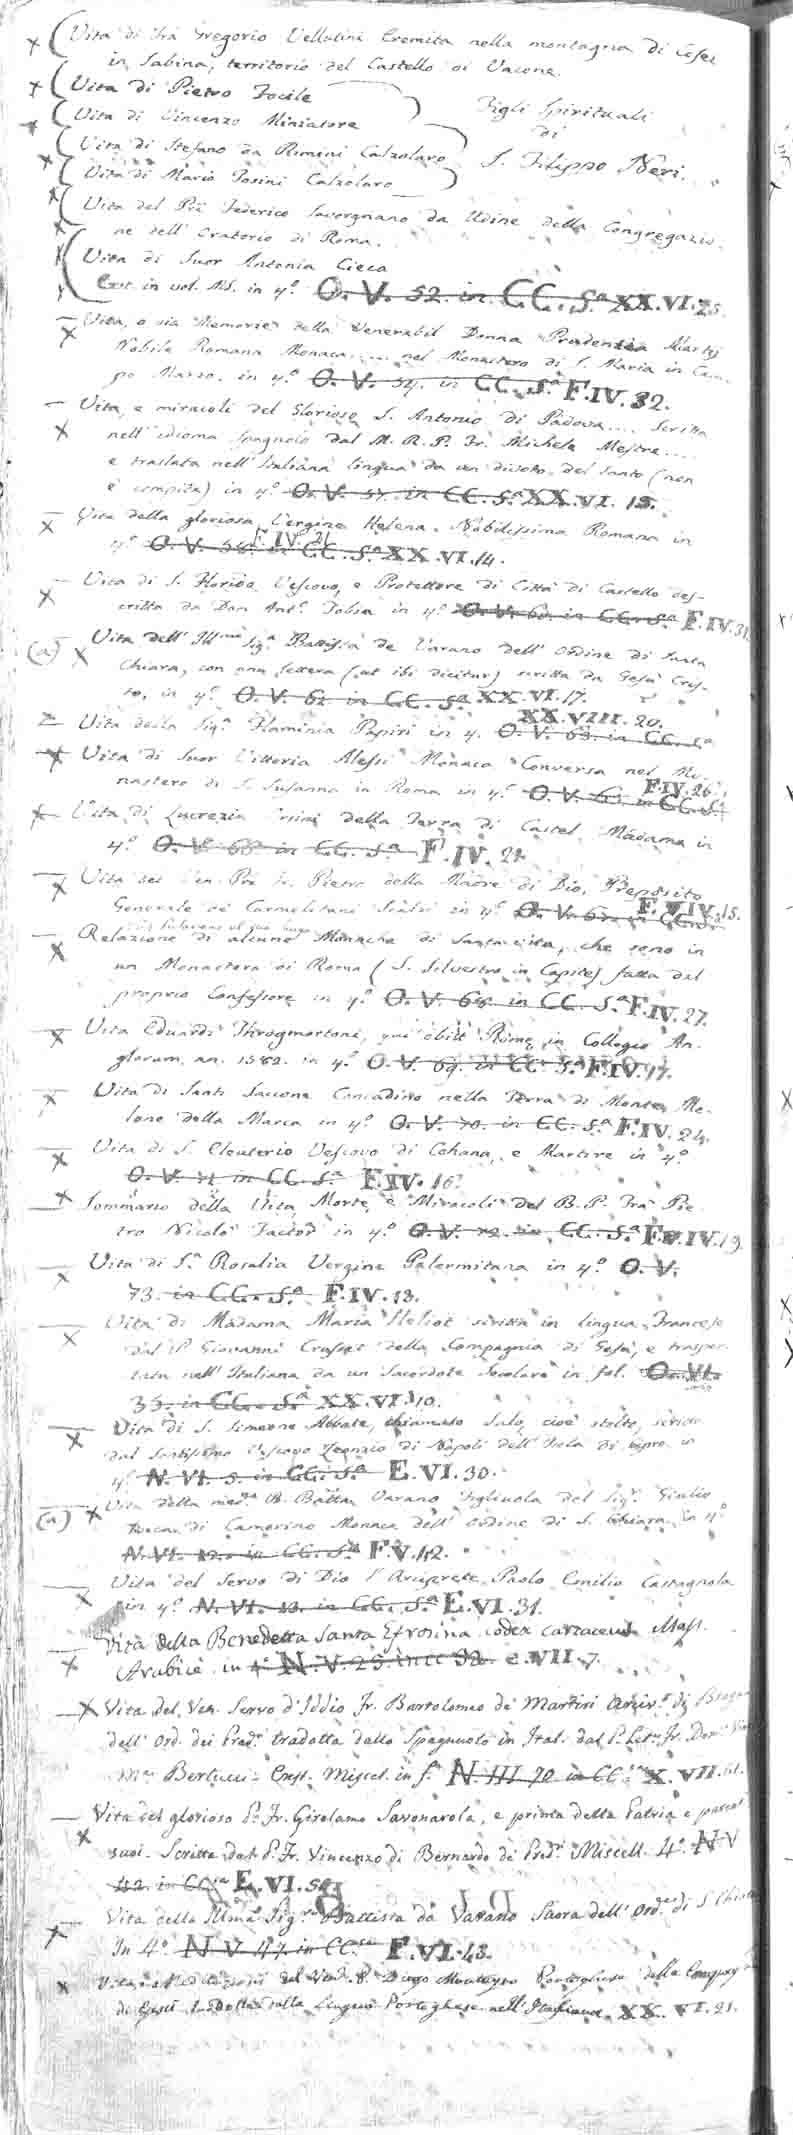 Vita di Frà Gregorio Vellutini Eremita nella montagna di
in Sabina, territorio del Castello di Vacone.
Vita di Pietro Focile
Vita di Vincenzo Miniatore
Figli Spirituali
di
S. Filippo Neri
Vita di Stefano da Rimini Calzolaro
Vita di Mario Tosini Calzolaro
Vita del P. Federico Savorgnano da Udine della Congregazio-
ne dell' Oratorio di Roma.
Vita di Suor Antonia Cieca
Ext. in vol. MS. in 4.º O. V. 52. in CC. S.ª XX.VI.25.
Vita, o sia Memorie della Venerabil Donna Prudenzia
Nobile Romana Monaca .... nel Monastero di S. Maria in Cam-
po Marzo. in 4.º O. V. 54. in CC. S.ª F.IV.32.
Vita, e miracoli del Glorioso S. Antonio di Padova .... scritta
nell' idioma Spagnolo dal M. R. P. Fr. Michele Mestre ....
e traslata nell' Italiana lingua da un divoto del Santo (non
è compita) in 4.º O. V. 57. in CC. S.ª XX.VI. 15.
Vita della gloriosa Vergine Helena. Nobilissima Romana in
F. IV. 21
4.º O. V. in CC. S.ª XX.VI.14.
Vita di S. Florido Vescovo, e Protettore di Città di Castello des-
critta da Don Ant.º Tobia in 4.º O. V. in CC. S.ª F.IV.31.
(a) Vita dell' Ill.ma Sig.ª Battista de Varano dell' Ordine di Santa
Chiara, con una lettera (ut ibi dicitur) scritta da Gesù Cris-
to, in 4.º O. V. 62 in CC. S.ª XX.VI.17.
XX.VIII.20.
Vita della Sig.ª Flaminia Papiri in 4. O. V. 63. in CC. S.ª
Vita di Suor Vittoria Alessi Monaca Conversa nel Mo-
F.IV.26
nastero di S. Susanna in Roma in 4.º O. V. in CC. S.ª
Vita di Lucrezia Orsini della Terra di Castel Madama in
4.º O. V. in CC. S.ª F.IV.
Vita del Ven. P. Fr. Pietro della Madre di Dio, Preposito
F.IV.15.
Generale de' Carmelitani Scalzi in 4.º O. V. in CC. S.ª
Relazione di alcune Monache di Santa vita, che sono in
un Monastero di Roma (S. Silvestro in Capite) fatta dal
proprio Confessore in 4.º O. V. 68. in CC. S.ª F.IV.27.
Vita Eduardi Throgmortoni, qui obiit Romæ in Collegio An-
glorum, an. 1582. in 4.º O. V. 69. in CC. S.ª F.IV.17.
Vita di Santi Saccone Contadino nella Terra di Monte Me-
lone della Marca in 4.º O. V. 70. in CC. S.ª F.IV.24.
Vita di S. Eleuterio Vescovo di Cohana, e Martire in 4.º
O. V. 71 in CC. S.ª F.IV. 16.
Sommario della Vita, Morte, e Miracoli del B. P. Frà Pie-
tro Nicolò Factor in 4.º O. V. 72. in CC. S.ª F.IV.19.
Vita di S.ª Rosalia Vergine Palermitana in 4.º O. V.
73. in CC. S.ª F.IV.18.
Vita di Madama Maria Heliot scritta in lingua Francese
dal P. Giovanni Crasset della Compagnia di Gesù, e traspor-
tata nell' Italiana da un Sacerdote Secolare in fol. O. VI.
35. in CC. S.ª XX.VI.10.
Vita di S. Simeone Abbate, chiamato Salo, cioè stolto, scritta
dal Santissimo Vescovo Leonzio di Napoli dell' Isola di Cipro in
4.º N. VI. 5. in CC. S.ª E.VI.30.
(a) Vita della med.ª B. Batta Varano figliuola del Sig.r Giulio
Duca di Camerino Monaca dell' Ordine di S. Chiara in 4.º
N. VI. 12. in CC. S.ª F.V.42.
Vita del Servo di Dio l' Arciprete Paolo Emilio Castagnola
in 4.º N. VI. 13. in CC. S.ª E.VI.31.
Vita della Benedetta Santa Efrosina codex cartaceus Mss.
Arabice in 4.º N. V. 25. in CC Sª. e.VII.7.
Vita del Ven. Servo d' Iddio Fr. Bartolomeo de Martiri di
dell' Ord. dei Pred.i tradotta dallo Spagnuolo in Ital. dal P. Let.e Fr. Dom.
M.a Bertucci. Ext. Miscel. in f.º N. III 70 in CC. X. VII.
Vita del glorioso P. Fr. Girolamo Savonarola, e prima della Patria e
suoi. Scritta dal P. Fr. Vincenzo di Bernardo de Pred.ri Miscell. 4.º N V
42. in CC E.VI.
Vita della Illma Sig.ra Battista da Varano Suora dell' Ord.ne di S. Chiara
In 4.º N. V. 47. in CC. F.VI.43.
Vita e Meditazioni del Ven. P. Diego Monteyro Portoghese della Compag
di Gesù tradotta dalla Lingua Portoghese nell' Italiana. XX. VI. 21.